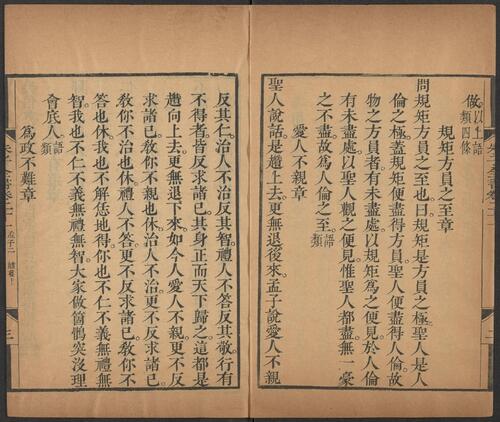 做。以上語類四條
規矩方員之至章
問規矩方員之至也。曰規矩是方員之極。聖人是人
倫之極。蓋規矩便盡得方員。聖人便盡得人倫。故
物之方員者有未盡處。以規矩為之便見。於人倫
有未盡處。以聖人觀之便見。惟聖人都盡。無一豪
之不盡。故為人倫之至。語類
愛人不親章
聖人說話。是趲上去。更無退後來。孟子說愛人不親
反其仁。治人不治反其智。禮人不答反其敬。行有
不得者。皆反求諸己。其身正而天下歸之。這都是
趲向上去。更無退下來。如今人愛人不親。更不反
求諸己。教你不親也休。治人不治。更不反求諸己。
教你不治也休。禮人不答。更不反求諸己。教你不
答也休。我也不解恁地得。你也不仁不義無禮無
智。我也不仁不義無禮無智。大家做箇鶻突沒理
會底人。語類
為政不難章
孟子二
三